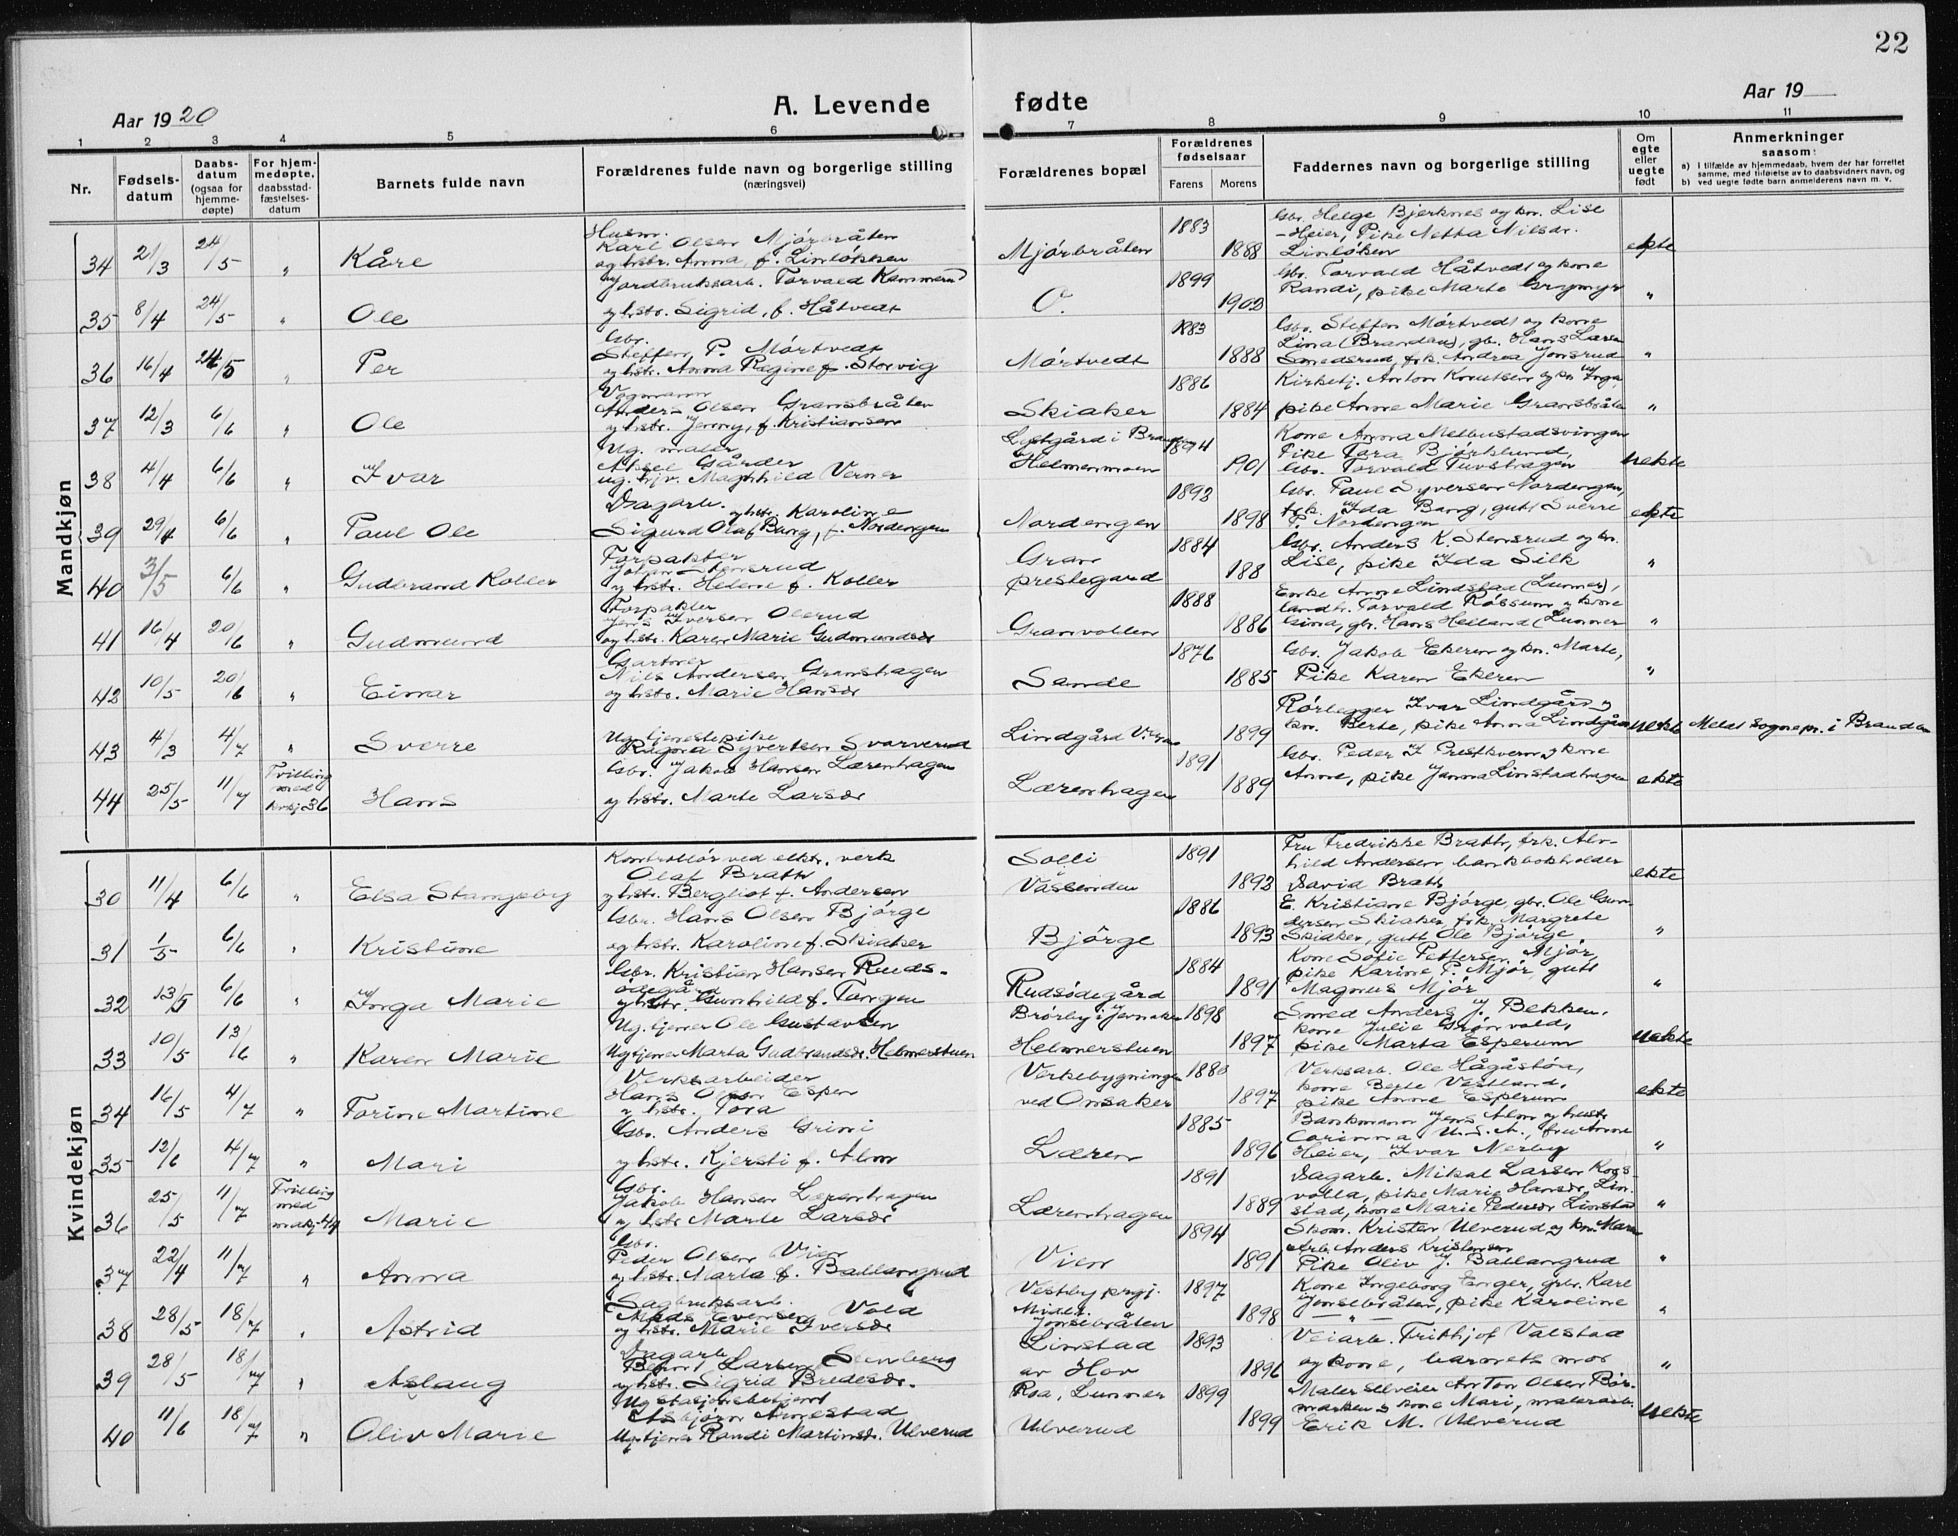 22
Aar 1920
A. Levende fødte
Aar 19
1 2 3 4 5 6 7 8 9 10 11
Nr.
Fødsels-
datum
Daabs-
datum
(ogsaa for
hjemme-
døpte)
For hjem-
medøpte,
daabsstad-
fæstelses-
datum
Barnets fulde navn
Forældrenes fulde navn og borgerlige stilling
(næringsvei)
Forældrenes bopæl
Forældrenes
fødselsaar
Farens Morens
Faddernes navn og borgerlige stilling
Om
egte
eller
uegte
født
Anmerkninger
saasom:
a) i tilfælde av hjemmedaab, hvem der har forrettet
samme, med tilføielse av to daabsvidners navn, og
b) ved uegte fødte barn anmelderens navn m. v.
Mandkjøn
34 21/3 24/5 " Kåre
Husm.
Karl Olsen Mjørbråten
og hstr. Anna, f. Linløkken
Mjørbråten 1883 1888
Gbr. Helge Bjerknes og kn. Lise
Heier, Pike Netta Nilsdr.
Linløken
ekte
35 8/4 24/5 " Ole
Jordbruksarb. Torvald Kammerud
og hstr. Sigrid, f. Håtvedt
O. 1899 1902
Gbr. Torvald Håtvedt og kone
Randi, pike Marte Grymyr
"
36 16/4 24/5 " Per
Gbr.
Steffen P. Mørtvedt
og hstr. Anna Ragine f. Storvig
Mørtvedt 1883 1888
Gbr. Steffen Mørtvedt og kone
Lina (Brandbu), gbr. Hans Larsen
Smedsrud, frk. Andrea Jonsrud
"
37 12/3 6/6 " Ole
Vognmann
Anders Olsen Gransbråten
og hstr. Jenny, f. Kristiansen
Skiaker 1886 1884
Kirketj. Anton Knutsen og kn. Inga,
pike Anne Marie Gransbråten
"
38 4/4 6/6 " Ivar
Ug. maler
Aksel Gårder
ug. tj. Maghhild Verner
Lystgård i Brandbu
Helmenmoen 1894 1901
Kone Anna Melbustadsvingen
Pike Tora Bjørklund,
Gbr. Torvald Tuvshagen
uekte
39 29/4 6/6 " Paul Ole
Dagarb.
Sigurd Olaf Bang, og hstr. Karoline f. Nordengen
Nordengen 1893 1898
Gbr. Paul Syversen Nordengen,
frk. Ida Bang, gutt Sverre
P. Nordengen
ekte
40 3/5 6/6 " Gudbrand Koller
Forpakter
Johan Stensrud
og hstr. Helene f. Koller
Gran
prestegard 1884 188
Gbr. Anders K. Stensrud og kn.
Lise, pike Ida Silk
"
41 16/4 20/6 " Gudmund
Forpakter
Jens Iversen Olerud
og hstr. Karen Marie Gudmundsdr
Granvollen 1888 1886
Enke Anne Lindstad (Lunner),
landh. Torvald Røssum og kone
Gina, gbr. Hans Helland (Lunner
"
42 10/5 20/6 " Einar
Gartner
Nils Andersen Granshagen
og hstr. Marie Hansdr
Sande 1876 1885
Gbr. Jakob Ekeren og kn. Marte,
Pike Karen Ekeren
"
43 4/3 4/7 " Sverre
Ug. tjenestepike
Ragna Syvertsen Svarverud
Lindgård 1899
Rørlegger Ivar Lindgård og
kn. Berte, pike Anna Lindgård
uekte
Meldt Sognepr. i Brandbu
44 25/5 11/7
Tvilling
med
kvkj 36
Hans
Gbr. Jakob Hansen Lærenhagen
og hstr. Marte Larsdr
Lærenhagen 1891 1889
Gbr. Peder I Prestkvern og kone
Anne, pike Janna Linstadhagen
ekte
Kvindekjøn
30 11/4 6/6 " Elsa Stangeby
Kontrollør ved elktr. verk
Olaf Bratt
og hstr. Bergliot f. Andersen
Solli
Vassenden 1891 1893
Fru Fredrikke Bratt, frk. Alv-
hild Andersen bankbokholder
David Bratt
ekte
31 1/5 6/6 " Kristine
Gbr. Hans Olsen Bjørge
og hstr. Karoline f. Skiaker
Bjørge 1886 1893
E. Kristiane Bjørge, gbr. Ole Gun-
dersen Skiaker frk. Margrete
Skiaker, gutt Ole Bjørge
"
32 13/5 6/6 " Inga Marie
Gbr. Kristian Hansen Ruds-
ødegård
og hstr. Gunhild f. Tangen
Rudsødegård 1884 1891
Kone Sofie Pettersen Mjør,
pike Karine P. Mjør, gutt
Magnus Mjør
"
33 10/5 13/6 " Karen Marie
Ug. tjener Ole Gustavsen
Ug tjener Marta Gudbrandsdr. Helmerstuen
Brørby i Jevnaker
Helmerstuen 1898 1897
Smed Anders J. Bekken,
kone Julie Grønvold,
pike Marta Esperum
uekte
34 16/5 4/7 " Torine Martine
Verksarbeider
Hans Olsen Espen
og hstr. Tora
Verkebygningen
ved Onsaker 1880 1897
Verksarb. Ole Hågåstøn,
kone Berte Vestland,
pike Anne Esperum
ekte
35 12/6 4/7 " Mari
Gbr. Anders Grini
og hstr. Kjersti f. Alm
Læren 1885 1896
Bankmann Jens Alm og hustr
Carinna U.S.A., fru Anne
Heier, Ivar Nerby
"
36 25/5 11/7
Tvilling
med
mnkj 44
Marie
Gbr.
Jakob Hansen Lærenhagen
og hstr Marte Larsdr
Lærenhagen 1891 1889
Dagarb. Mikal Larsen Kogs-
volla, pike Marie Hansdr Lin-
stad, kone Marie Pedersdr Linstad
"
37 22/4 11/7 " Anna
Gbr.
Peder Olsen Vien
og hstr. Marta f. Ballangrud
Vien 1894 1891
Skom. Kristen Ulverud og kn. Mara
Arb. Anders Kristensen
Pike Oliv J. Ballangrud
"
38 28/5 18/7 " Astrid
Sagbruksarb.
Mads Evensen Vold
og hstr. Marie Iversdr
Vestby prgj.
Jonsebråten 1897 1898
Kone Ingeborg Enger, gbr. Karl
Jonsebråten, pike Karoline
— " —
"
39 28/5 18/7 " Aslaug
Dagarb.
Bernt Larsen Stenberg
og hstr. Sigrid Bredesdr.
Linstad
av Hov 1893 1896
Veiarb. Frithjof Valstad
og kone, barnets mor
"
40 11/6 18/7 " Oliv Marie
Ug stasjonsbetjent
Asbjørn Annestad
Ug tjener Randi Martinsdr. Ulverud
Roa, Lunner
Ulverud 1899 1899
Maler selveier Anton Olsen Bør-
marken og kone Mari, malerarb.
Erik M. Ulverud
uekte